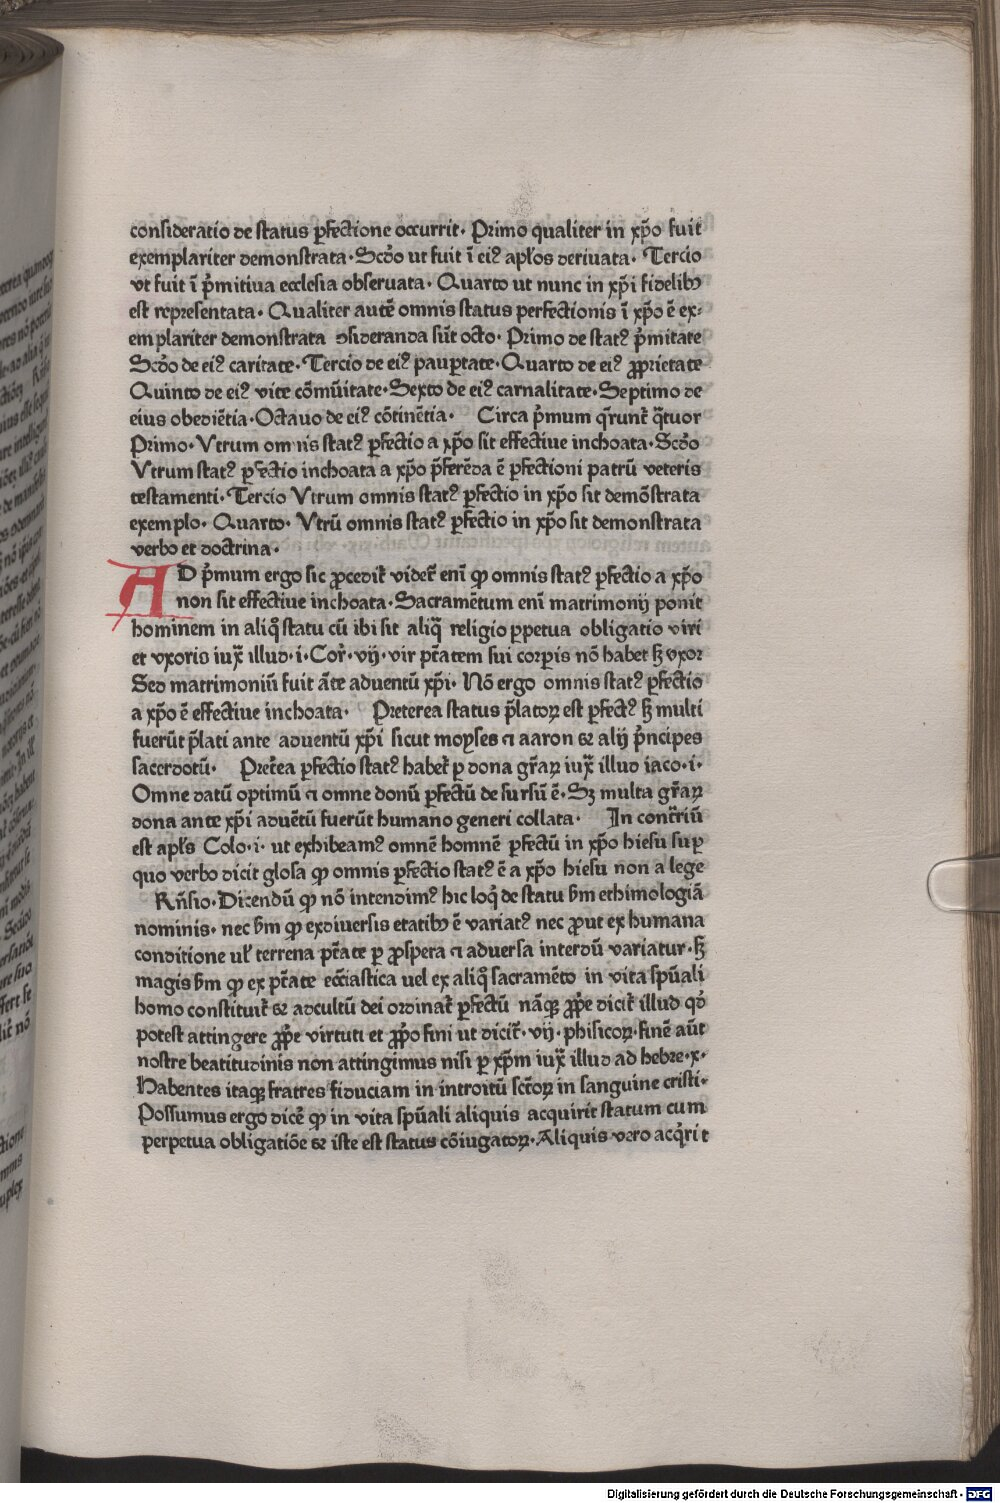 consideratio de status ꝑfectione occurrit· Primo qualiter in xp̄o fuit
exemplariter demonstrata·Scd̄o ut fuit ī eiꝰ apl̄os deriuata· Tercio
vt fuit ī p̄mitiua ecclesia obseruata· Quarto ut nunc in xp̄i fidelibꝫ
est representata· Qualiter autē omnis status perfectionis ī xp̄o ē ex⸗
emplariter demonstrata ꝯsideranda sūt octo· Primo de statꝰ p̄mitate
Scd̄o de eiꝰ caritate·Tercio de eiꝰ pauꝑtate·Quarto de eiꝰ ꝓprietate
Quinto de eiꝰ vite cōmūitate·Sexto de eiꝰ carnalitate·Septimo de
eius obediētia·Octauo de eiꝰ cōtinētia· Circa p̄mum q̄runt̄ q̄tuor
Primo·Vtrum omnis statꝰ ꝑfectio a xp̄o sit effectiue inchoata·Scd̄o
Vtrum statꝰ ꝑfectio inchoata a xp̄o p̄ferēda ē ꝑfectioni patrū veteris
testamenti·Tercio Vtrum omnis statꝰ ꝑfectio in xp̄o sit demōstrata
exemplo· Quarto· Vtrū omnis statꝰ ꝑfectio in xp̄o sit demonstrata
verbo et doctrina·
AD p̄mum ergo sic ꝓcedit̄ videt̄ enī ꝙ omnis statꝰ ꝑfectio a xp̄o
non sit effectiue inchoata·Sacramētum enī matrimonij ponit
hominem in aliq̄ statu cū ibi sit aliq̄ religio ꝑpetua obligatio viri
et vxoris iux̄ illud·i·Cor̄·vij·vir pt̄atem sui corꝑis nō habet sꝫ vxor
Sed matrimoniū fuit āte aduentū xp̄i· Nō ergo omnis statꝰ ꝑfectio
a xp̄o ē effectiue inchoata· Preterea status p̄latoꝝ est ꝑfectꝰ sꝫ multi
fuerūt p̄lati ante aduentū xp̄i sicut moyses ⁊ aaron & alij p̄ncipes
sacerdotū· Pret̄ea ꝑfectio statꝰ habet̄ ꝑ dona gr̄aꝝ iux̄ illud iaco·i·
Omne datū optimū ⁊ omne donū ꝑfectū de sursū ē·Sꝫ multa gr̄aꝝ
dona ante xp̄i aduētū fuerūt humano generi collata· In contr̄iū
est apl̄s Colo·i· ut exhibeamꝰ omnē homnē ꝑfectū in xp̄o hiesu suꝑ
quo verbo dicit glosa ꝙ omnis ꝑfectio statꝰ ē a xp̄o hiesu non a lege
Rn̄sio·Dicendū ꝙ nō intendimꝰ hic loq̄ de statu ẜm ethimologiā
nominis· nec ẜm ꝙ ex diuersis etatibꝫ ē variatꝰ nec ꝓut ex humana
conditione ul̄ terrena pt̄ate ꝑ ꝓspera ⁊ aduersa interdū variatur·sꝫ
magis ẜm ꝙ ex pt̄ate ecc̄iastica uel ex aliq̄ sacramēto in vita spūali
homo constituit̄ & ad cultū dei ordinat̄ ꝑfectū nāqꝫ ꝓpe dicit̄ illud qd̄
potest attingere ꝓpe virtuti et ꝓpo fini ut dicit̄·vij·phisicoꝝ·finē aūt
nostre beatitudinis non attingimus nisi ꝑ xp̄m iux̄ illud ad hebre·x·
Habentes itaqꝫ fratres fiduciam in introitū sct̄oꝝ in sanguine cristi·
Possumus ergo dicē ꝙ in vita spūali aliquis acquirit statum cum
perpetua obligatiōe & iste est status cōiugatoꝝ·Aliquis vero acq̄rit
Digitalisierung gefördert durch die Deutsche Forschungsgemeinschaft - DFG